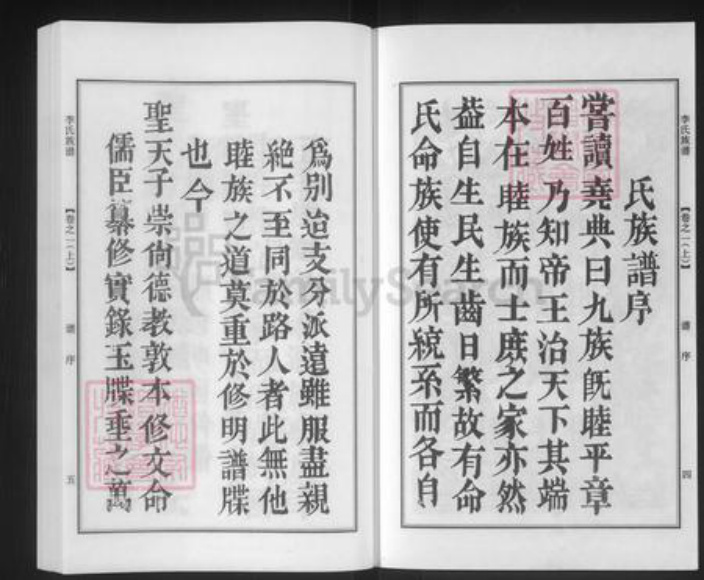 李氏族譜
【卷之一(上)】
譜序
四
氏族譜序
嘗讀堯典曰九族既睦平章
百姓乃知帝王治天下其端
本在睦族而士庶之家亦然
葢自生民生齒日繁故有命
氏命族使有所統系而各自
爲别迨支分派遠雖服盡親
絶不至同於路人者此無他
睦族之道莫重於修明譜牒
也今
聖天子崇尙德教敦本修文命
儒臣纂修實錄玉牒垂之萬
李氏族譜
【卷之一(上)】
譜序
五
FamilySearch